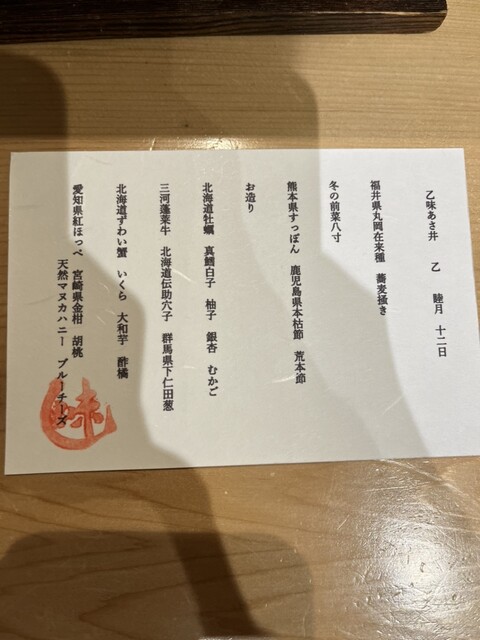 乙味あさ井　乙　睦月　十二日
福井県丸岡在来種　蕎麦掻き
冬の前菜八寸
熊本県すっぽん　鹿児島県本枯節　荒本節
お造り
北海道牡蠣　真鱈白子　柚子　銀杏　むかご
三河蓬莱牛　北海道伝助穴子　群馬県下仁田葱
北海道ずわい蟹　いくら　大和芋　酢橘
愛知県紅ほっぺ　宮崎県金柑　胡桃
天然マヌカハニー　ブルーチーズ
味